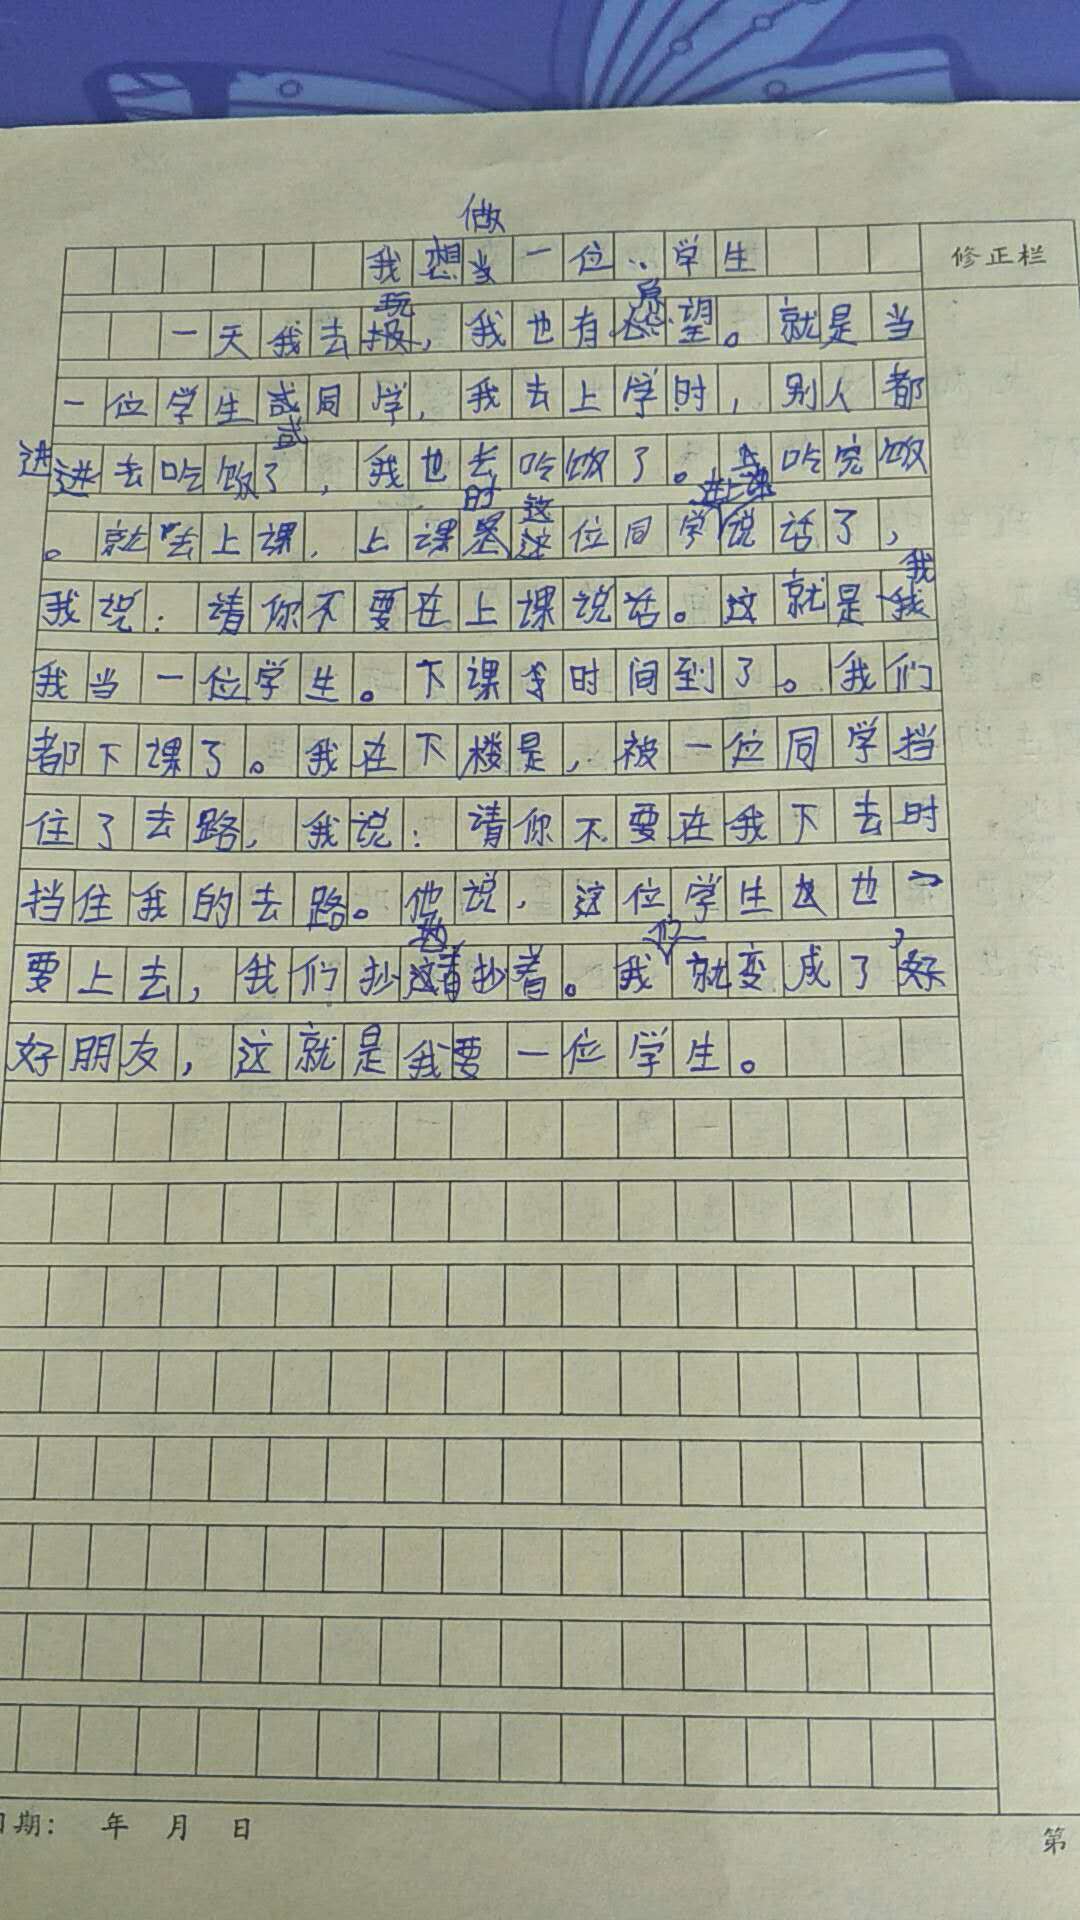 做
我想当一位..学生
修正栏
玩
愿
一天我去报，我也有愿望。就是当
一位学生或同学，我去上学时，别人都
或
进
进去吃饭了，我也去吃饭了。去吃完饭
时 这 进上课
。就去上课，上课是这位同学说话了，
我
我说：请你不要在上课说话。这就是我
我当一位学生。下课时间到了。我们
都下课了。我在下楼是，被一位同学挡
住了去路，我说：请你不要在我下去时
挡住我的去路。他说，这位学生也
们
要上去，我们抄这着抄着。我就变成了好
好朋友，这就是我要一位学生。
日期： 年 月 日
第